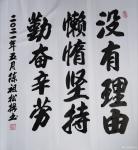 没有理由
懒惰坚持
勤奋辛劳
二〇二一年五月徐祖松书